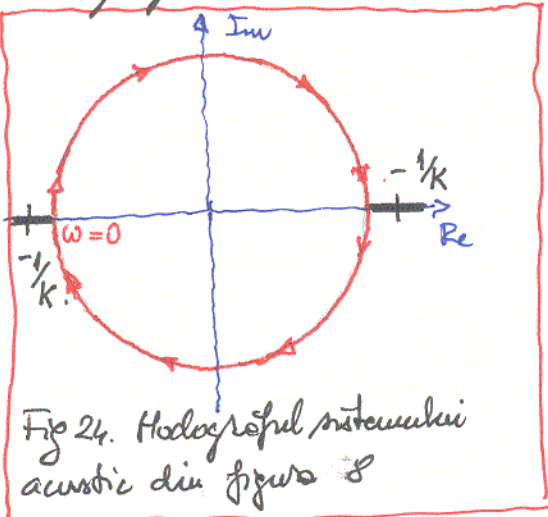 Im
- 1/K
ω = 0
Re
-1/K.
Fig 24. Hodograful sistemului
acustic din figura 8